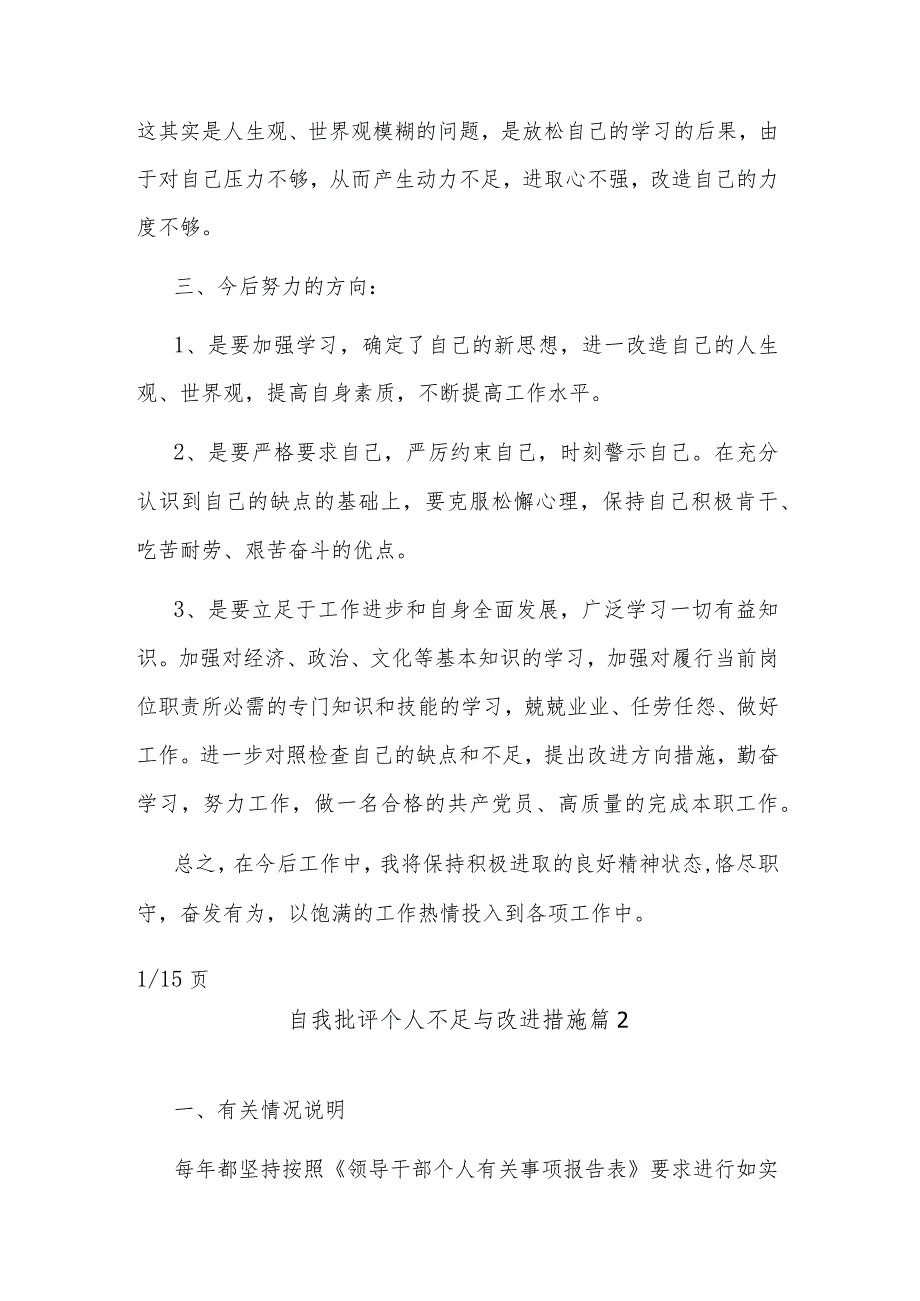 这其实是人生观、世界观模糊的问题，是放松自己的学习的后果，由
于对自己压力不够，从而产生动力不足，进取心不强，改造自己的力
度不够。
三、今后努力的方向：
1、是要加强学习，确定了自己的新思想，进一改造自己的人生
观、世界观，提高自身素质，不断提高工作水平。
2、是要严格要求自己，严厉约束自己，时刻警示自己。在充分
认识到自己的缺点的基础上，要克服松懈心理，保持自己积极肯干、
吃苦耐劳、艰苦奋斗的优点。
3、是要立足于工作进步和自身全面发展，广泛学习一切有益知
识。加强对经济、政治、文化等基本知识的学习，加强对履行当前岗
位职责所必需的专门知识和技能的学习，兢兢业业、任劳任怨、做好
工作。进一步对照检查自己的缺点和不足，提出改进方向措施，勤奋
学习，努力工作，做一名合格的共产党员、高质量的完成本职工作。
总之，在今后工作中，我将保持积极进取的良好精神状态,恪尽职
守，奋发有为，以饱满的工作热情投入到各项工作中。
1/15 页
自我批评个人不足与改进措施篇 2
一、有关情况说明
每年都坚持按照《领导干部个人有关事项报告表》要求进行如实